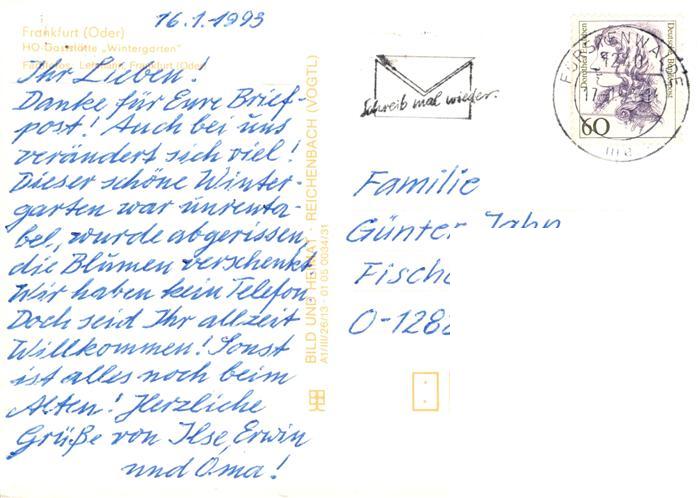 16.1.1993
Frankfurt (Oder)
HO-Gaststätte „Wintergarten"
Ihr Lieben!
Danke für Eure Brief-
post! Auch bei uns
verändert sich viel!
Dieser schöne Winter-
garten war unrenta-
bel, wurde abgerissen,
die Blumen verschenkt
Wir haben kein Telefon.
Doch seid Ihr allzeit
Willkommen! Sonst
ist alles noch beim
Alten! Herzliche
Grüße von Ilse, Erwin
und Oma!
BILD UND HEIMAT · REICHENBACH (VOGTL)
A1/III/26/13 · 01 05 0034/31
Schreib mal wieder.
FÜRSTENWALDE
Deutsche Bundespost
60
Familie
Günter Jahn
O-128